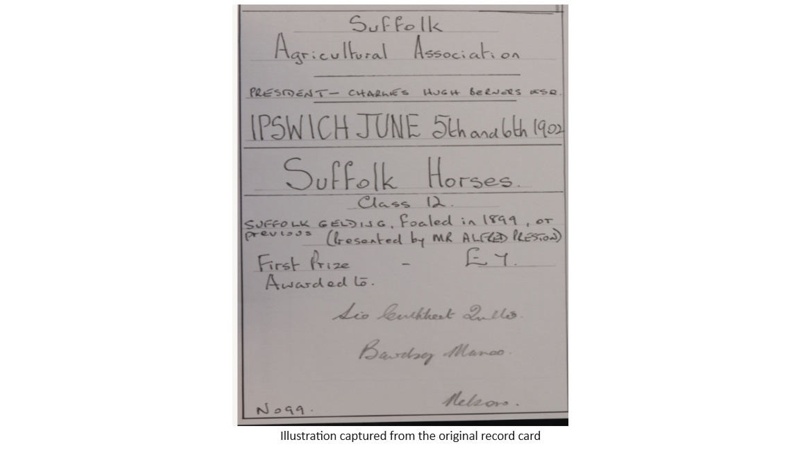 Suffolk
Agricultural Association
PRESIDENT — CHARLES HUGH BERNERS ESQ.
IPSWICH JUNE 5th and 6th 1902
Suffolk Horses.
Class 12.
SUFFOLK GELDING, Foaled in 1899, or
previous (Presented by MR ALFRED PRESTON)
First Prize - £7.
Awarded to.
Sir Cuthbert Quilter
Bawdsey Manor.
Nelson.
No 99.
Illustration captured from the original record card